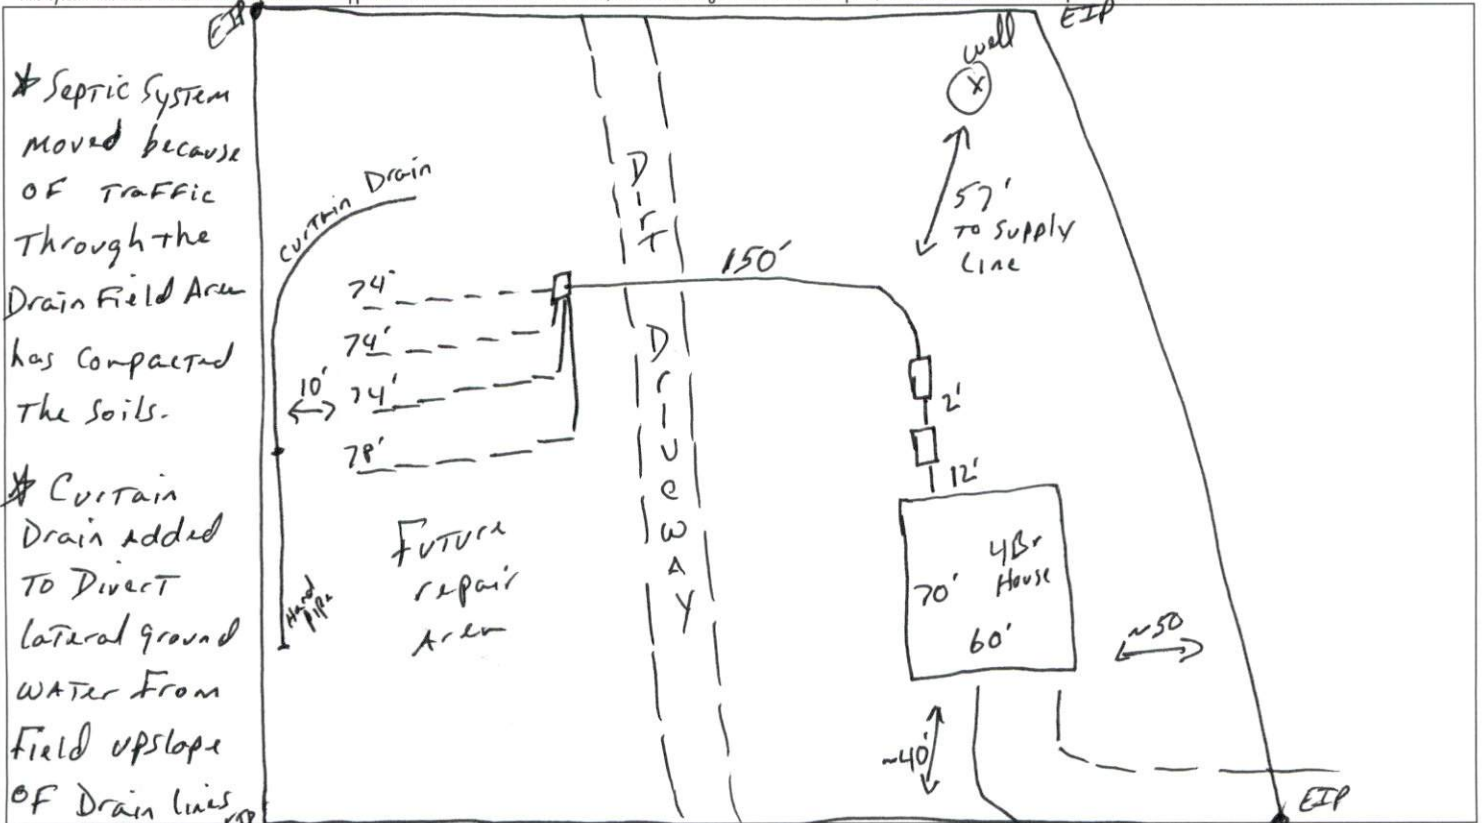 EIP
EIP
* Septic System
moved because
OF Traffic
Through the
Drain Field Area
has Compacted
The Soils.
* Curtain
Drain Added
To Divert
lateral ground
WATer From
Field upslope
OF Drain lines
Curtain Drain
74'
74'
74'
78'
10'
Hard
pipe
Future
repair
Area
Dirt
Driveway
150'
well
X
57'
To Supply
Line
2'
12'
4Br
House
70'
60'
~50
~40'
EIP